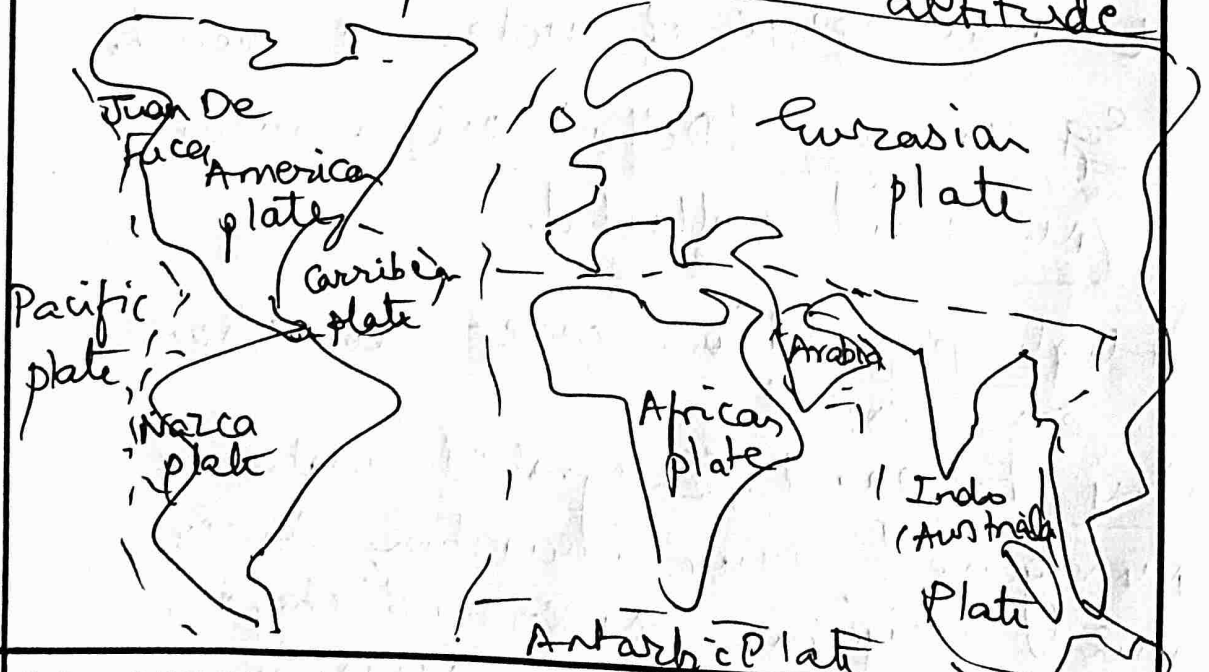 altitude
Juan De
Fuca
America
plate
Carribean
plate
Pacific
plate
Nazca
plate
Eurasian
plate
Arabia
African
plate
Indo
(Australia
Plate
Antarctic Plate